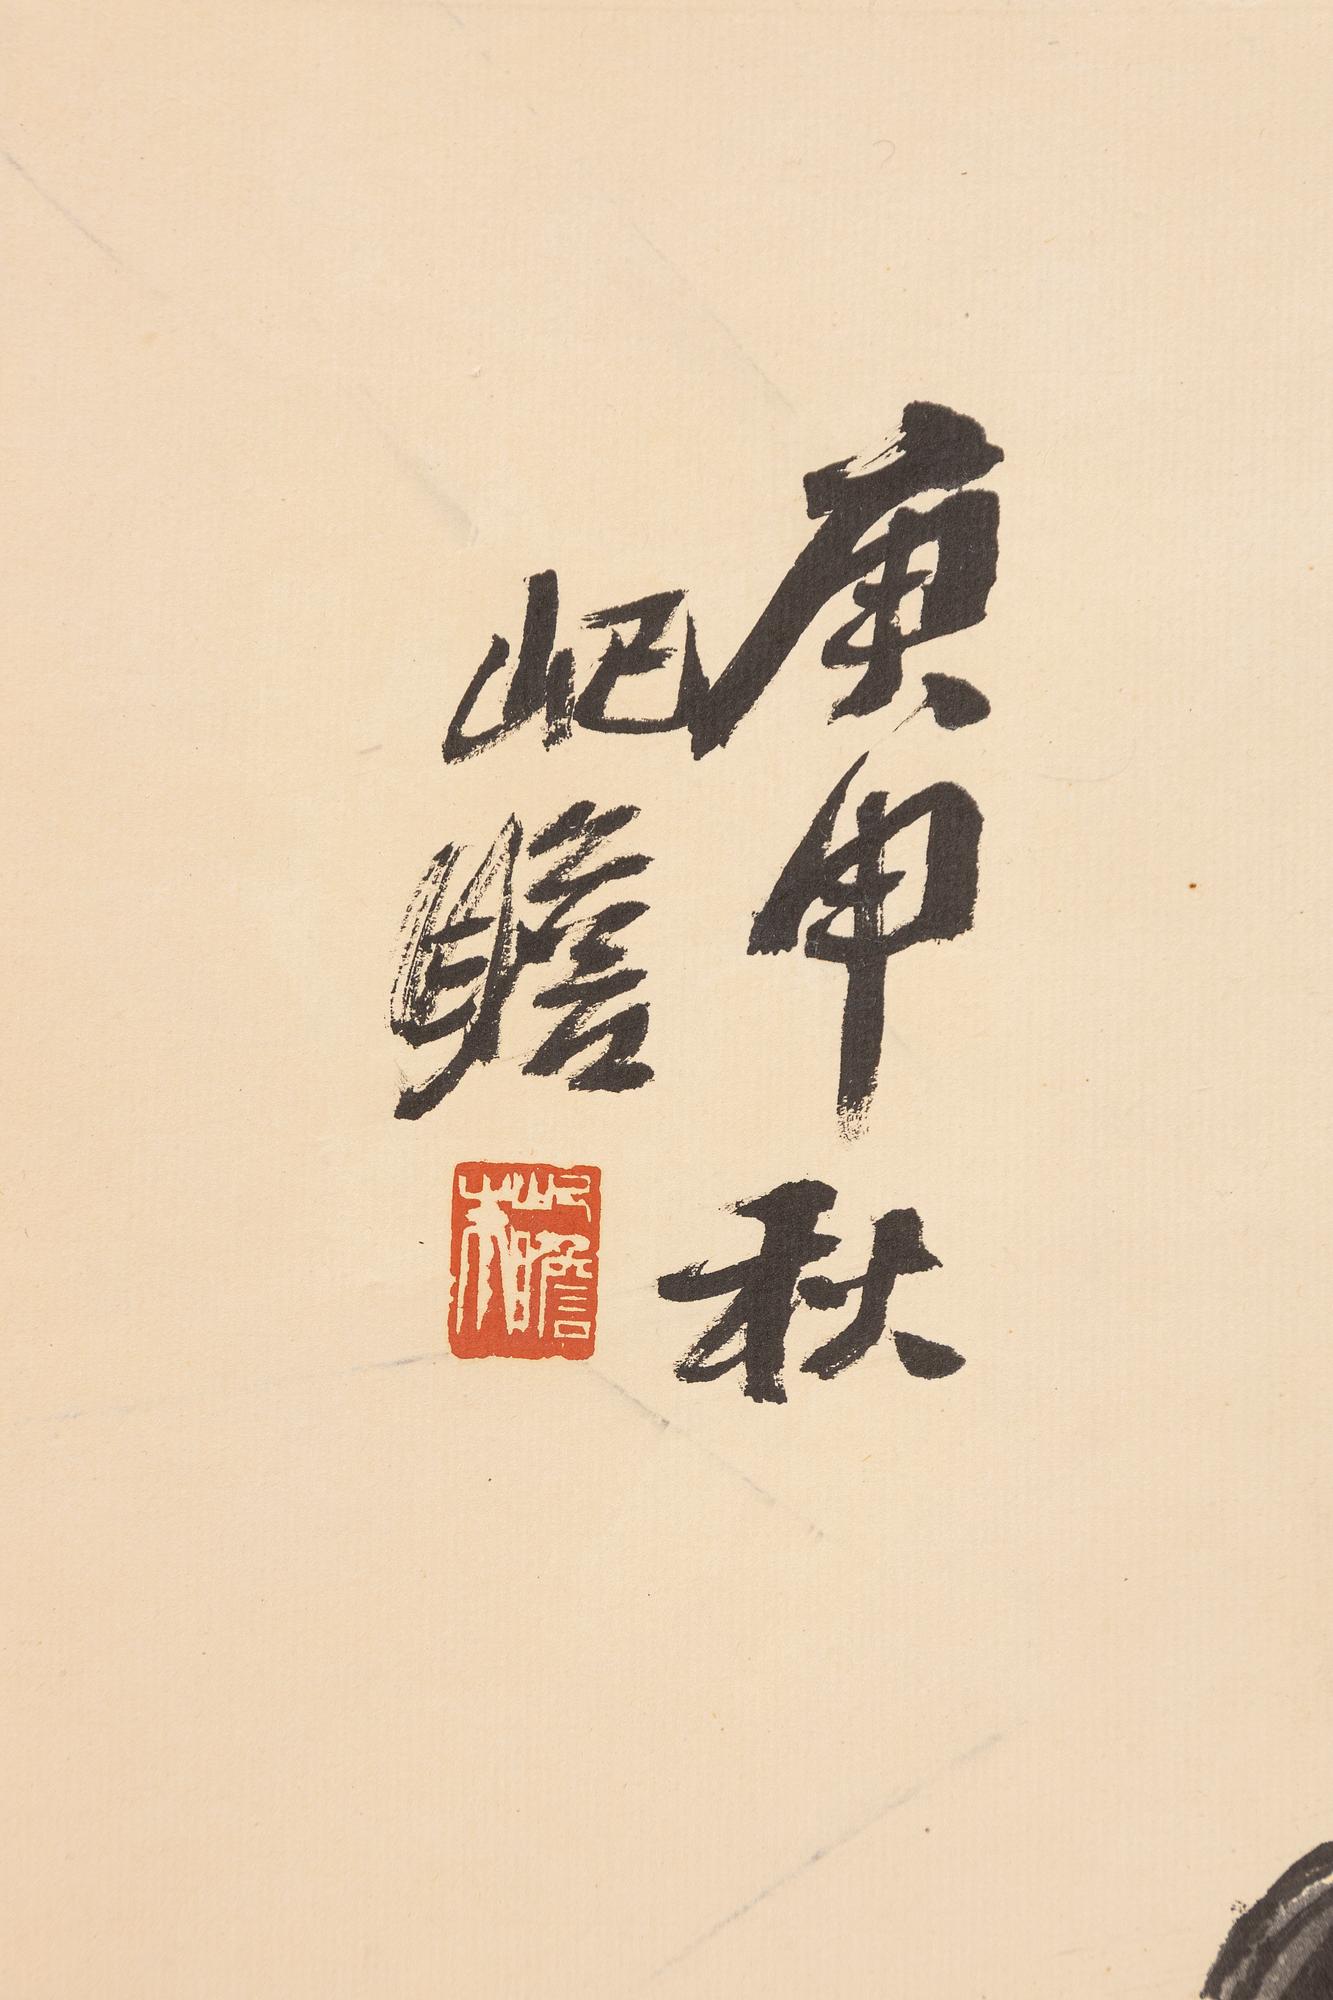 庚申秋
屺瞻
朱屺瞻